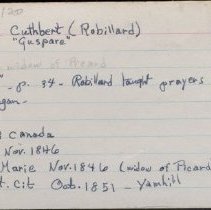 Cuthbert (Robillard)
"Guspare"
widow of Picard
" - p. 34 - Robillard taught prayers
gan.
Canada
Nov. 1846
Marie Nov. 1846 (widow of Picard
t. cit Oct. 1851 - Yamhill